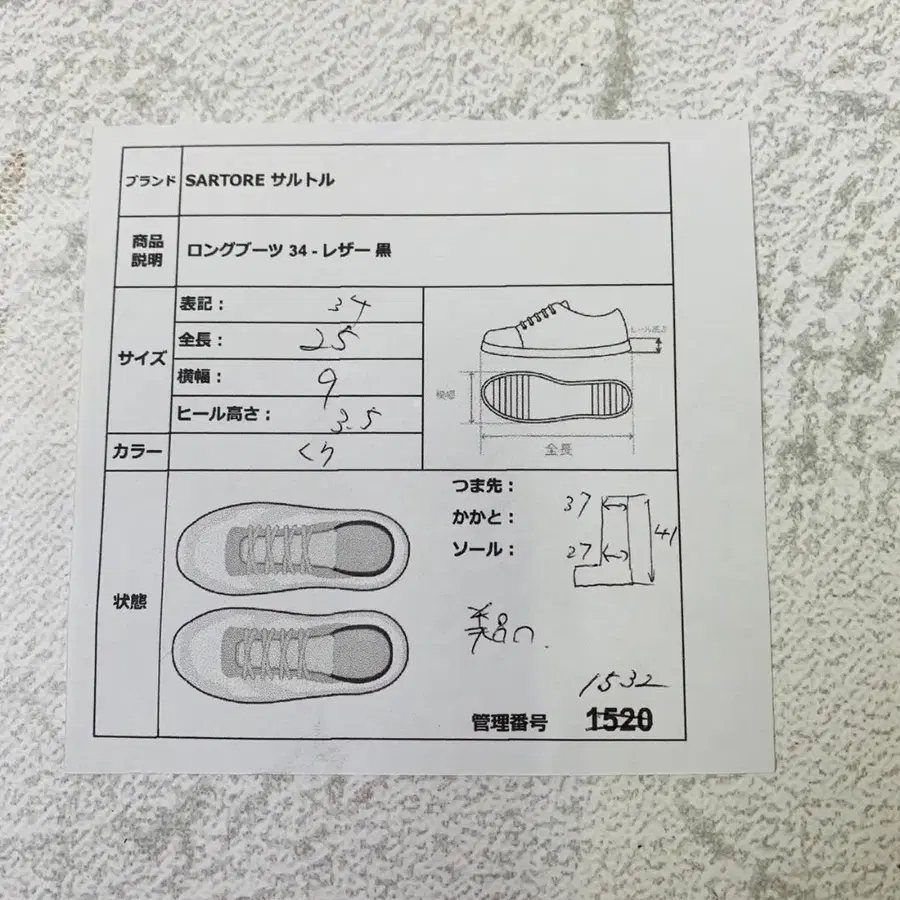 ブランド SARTORE サルトル
商品説明 ロングブーツ 34 - レザー 黒
サイズ
表記： 34
全長： 25
横幅： 9
ヒール高さ： 3.5
ヒール高さ
横幅
全長
カラー くろ
状態
つま先：
かかと：
ソール：
37
27
41
美品.
1532
管理番号 1520